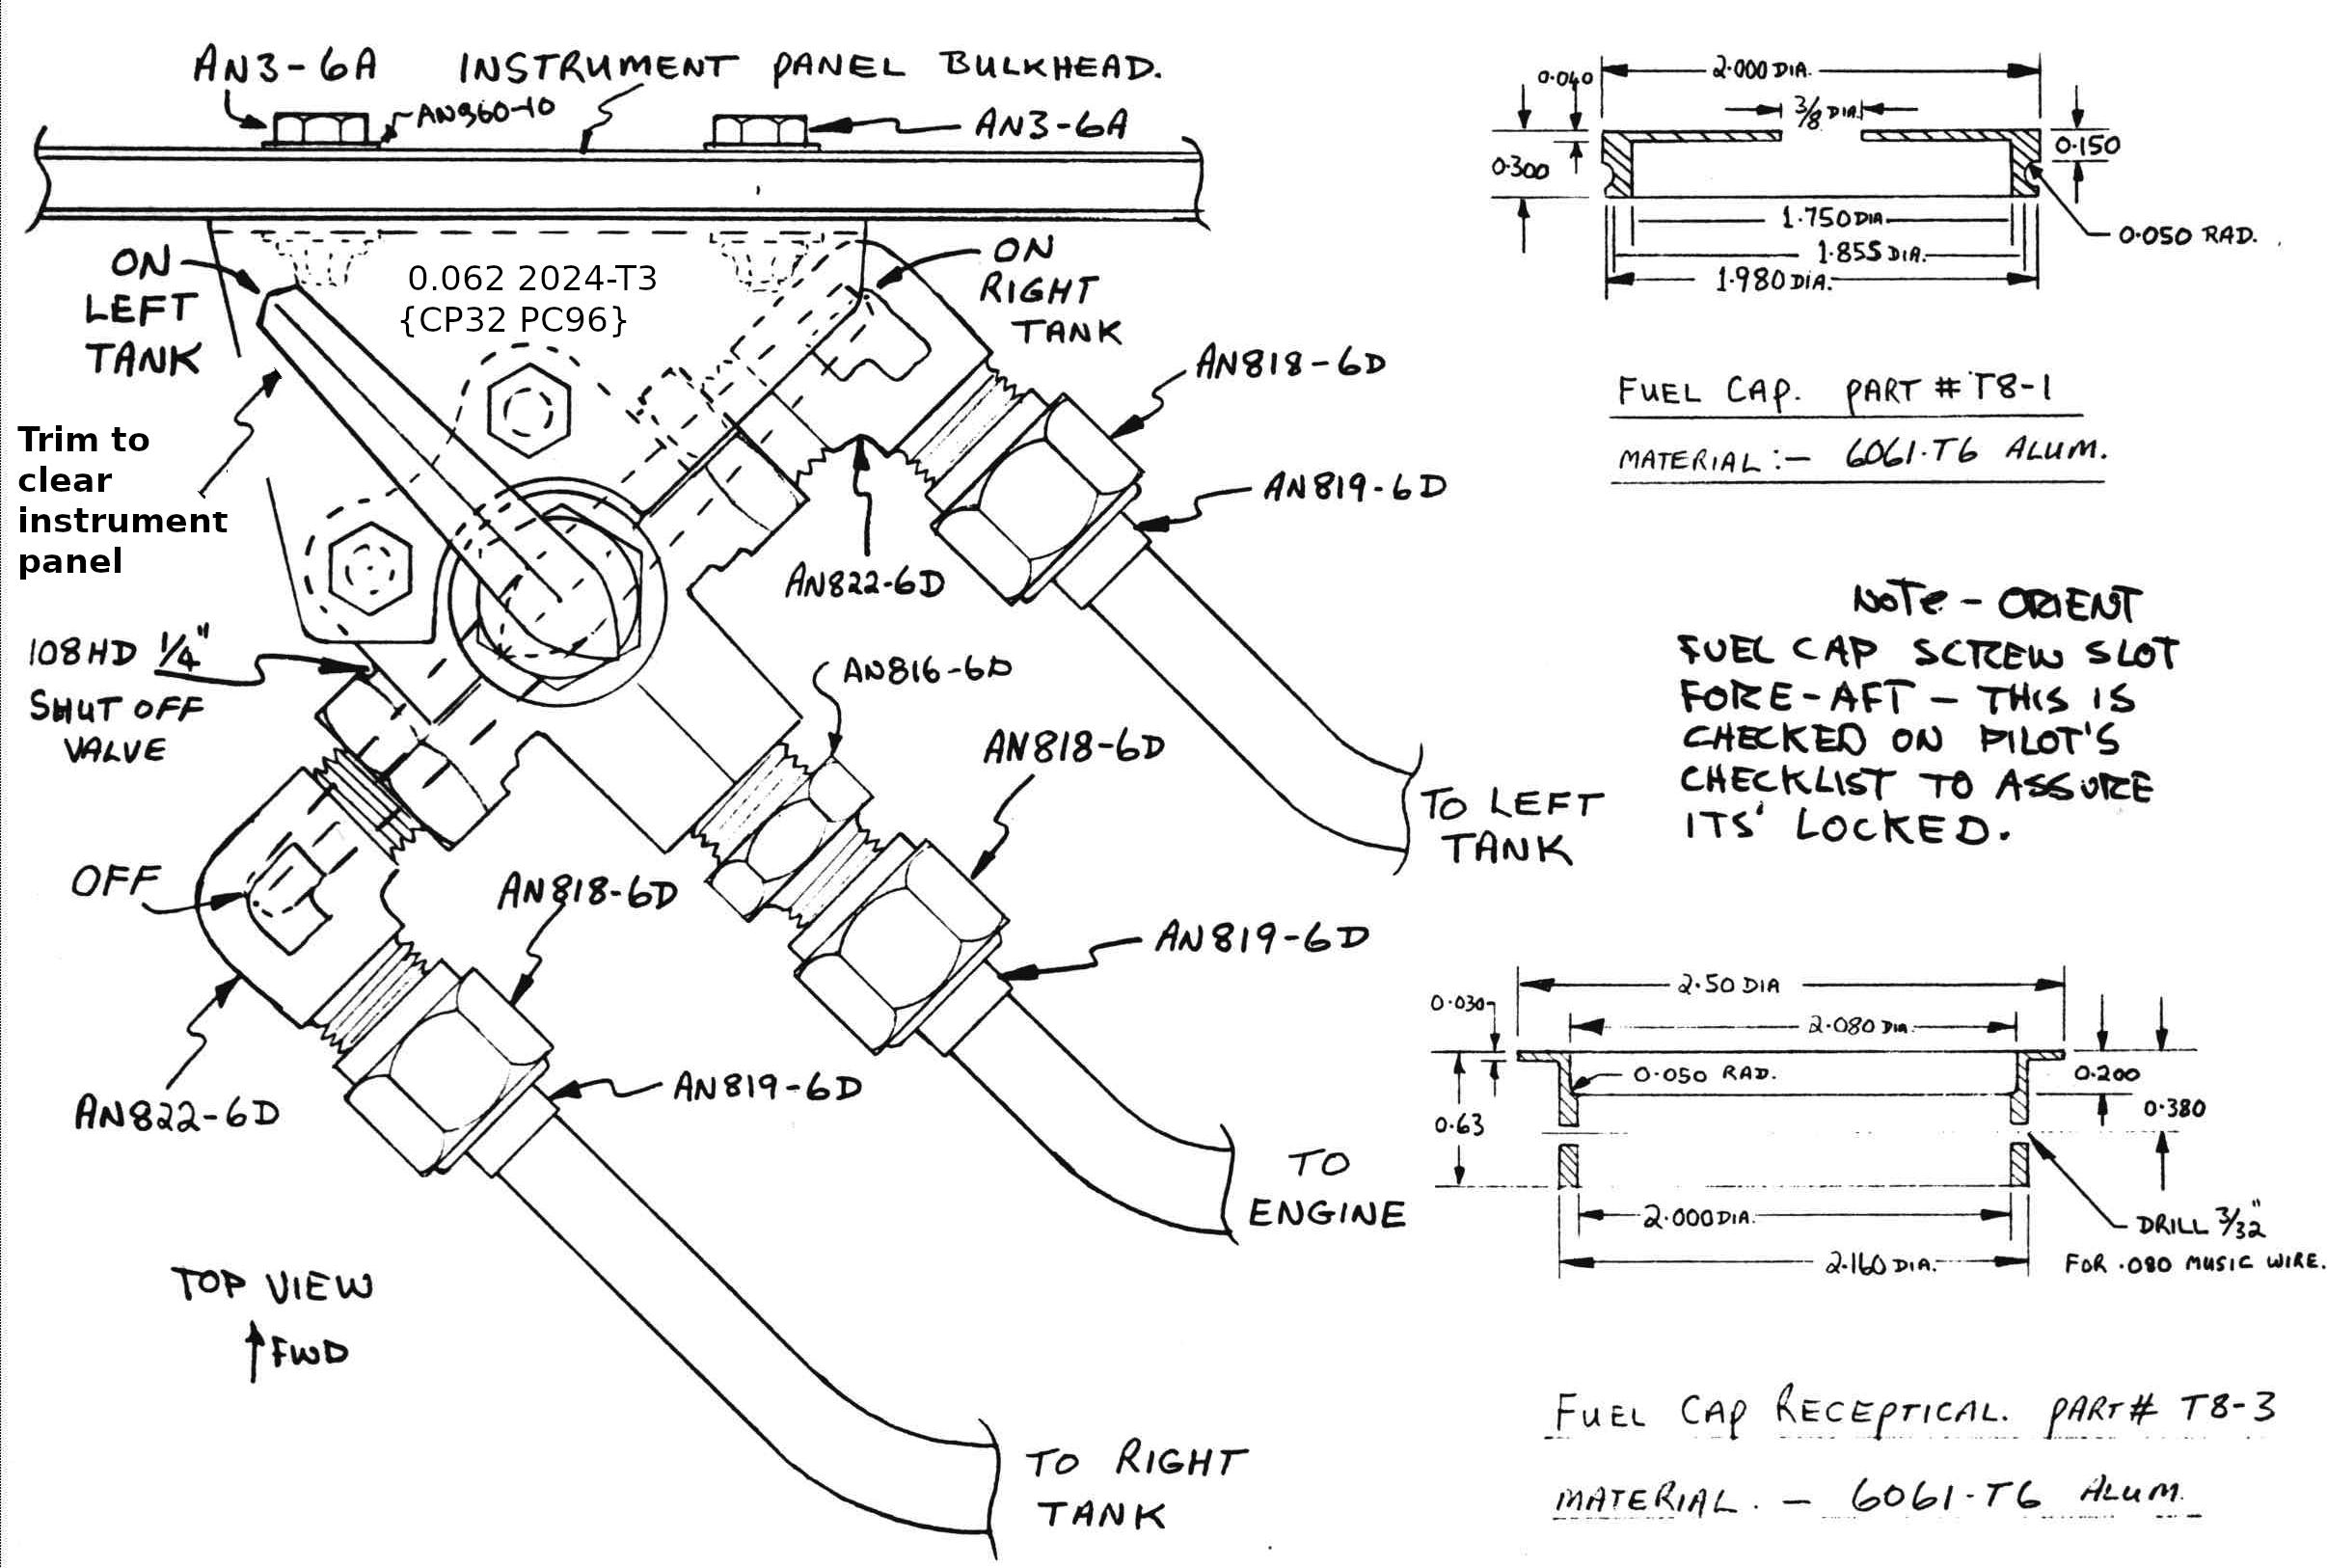 AN3-6A INSTRUMENT PANEL BULKHEAD.
AN960-10
AN3-6A
ON
LEFT
TANK
0.062 2024-T3
{CP32 PC96}
ON
RIGHT
TANK
Trim to
clear
instrument
panel
AN818-6D
AN819-6D
AN822-6D
108HD 1/4"
SHUT OFF
VALVE
AN816-6D
AN818-6D
TO LEFT
TANK
OFF
AN818-6D
AN819-6D
AN822-6D
AN819-6D
TO
ENGINE
TOP VIEW
↑FWD
TO RIGHT
TANK
2.000 DIA.
0.040
3/8 DIA.
0.300
0.150
1.750 DIA.
0.050 RAD.
1.855 DIA.
1.980 DIA.
FUEL CAP. PART # T8-1
MATERIAL:- 6061-T6 ALUM.
NOTE - ORIENT
FUEL CAP SCREW SLOT
FORE-AFT - THIS IS
CHECKED ON PILOT'S
CHECKLIST TO ASSURE
ITS' LOCKED.
2.50 DIA
0.030
2.080 DIA.
0.050 RAD.
0.200
0.380
0.63
2.000 DIA.
DRILL 3/32"
FOR .080 MUSIC WIRE.
2.160 DIA.
FUEL CAP RECEPTICAL. PART# T8-3
MATERIAL. - 6061-T6 ALUM.